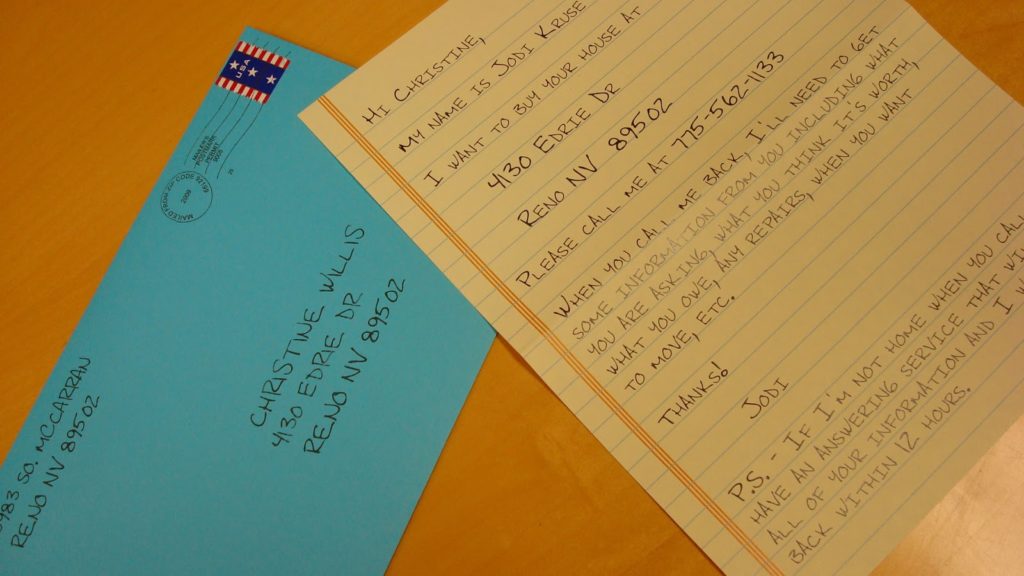 USA
MAILED FROM ZIP CODE
2006
MAILER'S
POSTMARK
PERMIT
4983 SO. MCCARRAN
RENO NV 89502
CHRISTINE WILLIS
4130 EDRIE DR
RENO NV 89502
HI CHRISTINE,
MY NAME IS JODI KRUSE
I WANT TO BUY YOUR HOUSE AT
4130 EDRIE DR
RENO NV 89502
PLEASE CALL ME AT 775-562-1133
WHEN YOU CALL ME BACK, I'LL NEED TO GET
SOME INFORMATION FROM YOU INCLUDING WHAT
YOU ARE ASKING, WHAT YOU THINK IT'S WORTH,
WHAT YOU OWE, ANY REPAIRS, WHEN YOU WANT
TO MOVE, ETC.
THANKS!
JODI
P.S. - IF I'M NOT HOME WHEN YOU CALL
HAVE AN ANSWERING SERVICE THAT
ALL OF YOUR INFORMATION AND I
BACK WITHIN 12 HOURS.